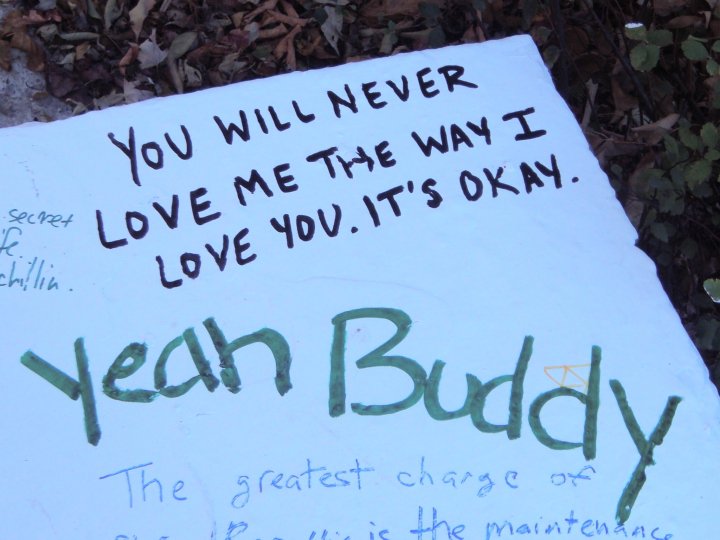 YOU WILL NEVER
LOVE ME THE WAY I
LOVE YOU. IT'S OKAY.
secret
chillin.
Yeah Buddy
The greatest charge of
is the maintenance